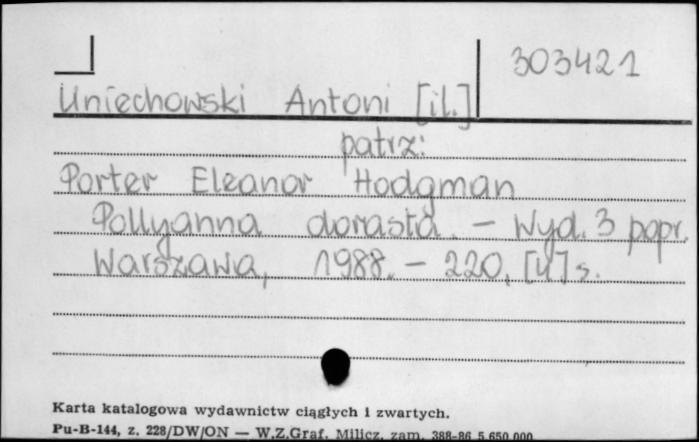 303421
Uniechowski Antoni [il.]
patrz:
Porter Eleanor Hodgman
Pollyanna dorasta. – Wyd. 3 popr.
Warszawa, 1988. – 220, [4] s.
Karta katalogowa wydawnictw ciągłych i zwartych.
Pu-B-144, z. 228/DW/ON — W.Z.Graf. Milicz, zam. 388-86 5.650.000